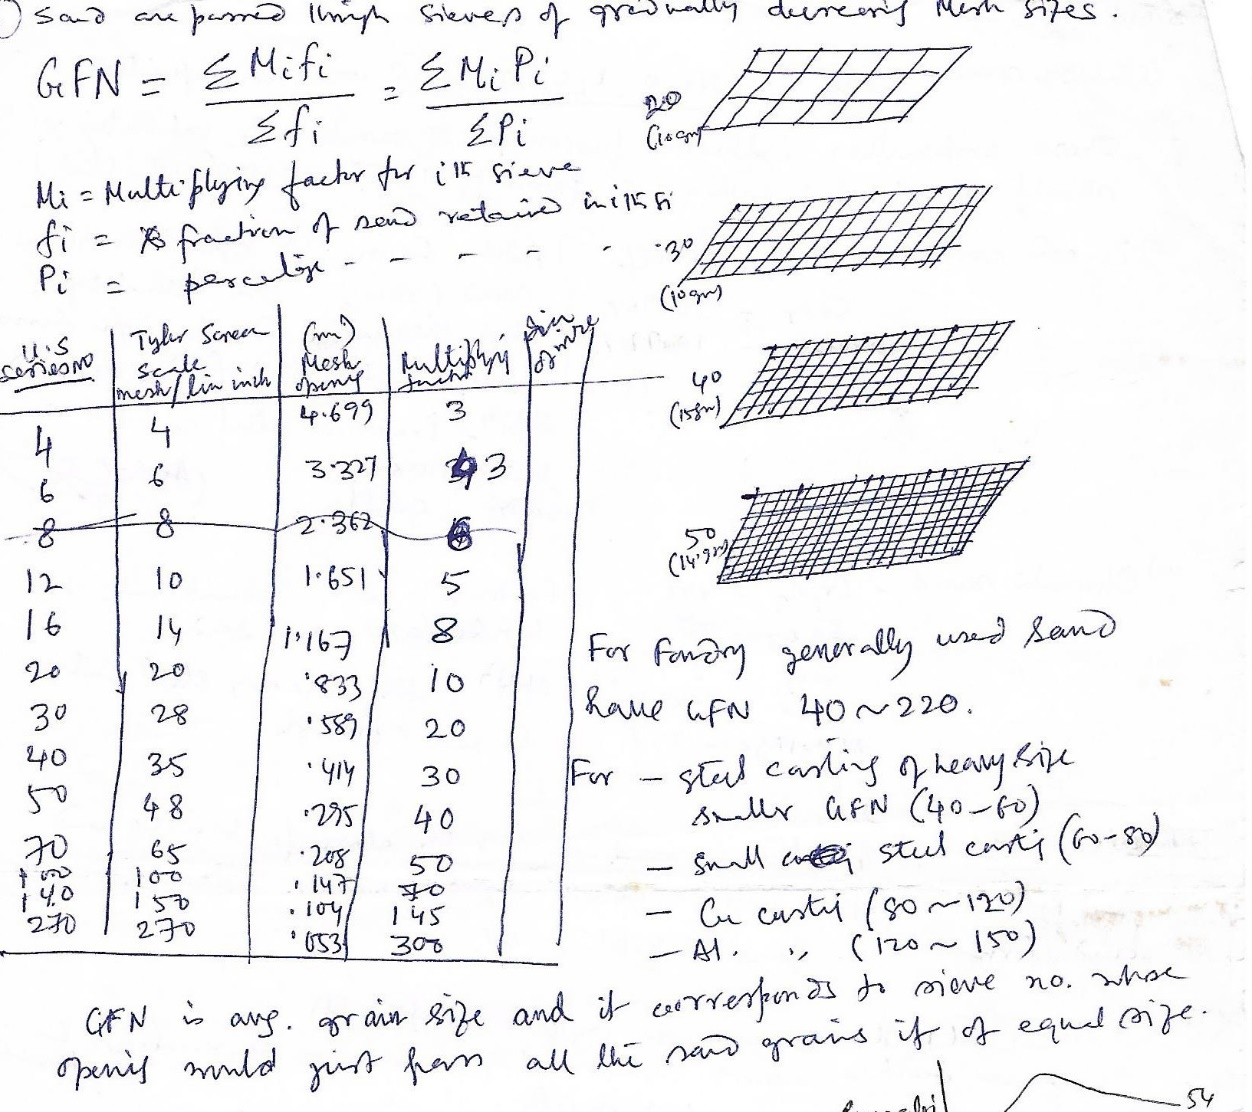 Sand are passed through sieves of gradually decreasing Mesh sizes.
GFN = Σ Mifi / Σ fi = Σ Mi Pi / Σ Pi
Mi = Multiplying factor for ith sieve
fi = fraction of sand retained in ith Si
Pi = percentage - - - - -
20
(10gm)
30
(10gm)
40
(15gm)
50
(14.9gm)
U.S series no | Tyler Screen Scale mesh/lin inch | (mm) Mesh opening | Multiplying factor | of wire
4 4 4.699 3
6 6 3.327 3
8 8 2.362 6
12 10 1.651 5
16 14 1.167 8
20 20 .833 10
30 28 .589 20
40 35 .414 30
50 48 .295 40
70 65 .208 50
100 100 .147 70
140 150 .104 145
270 270 .053 300
For Foundry generally used sand
have GFN 40~220.
For - steel casting of heavy size
smaller GFN (40-60)
- small steel casting (60-80)
- Cu casting (80~120)
- Al. ,, (120~150)
GFN is avg. grain size and it corresponds to sieve no. whose
opening would just pass all the sand grains if of equal size.
54